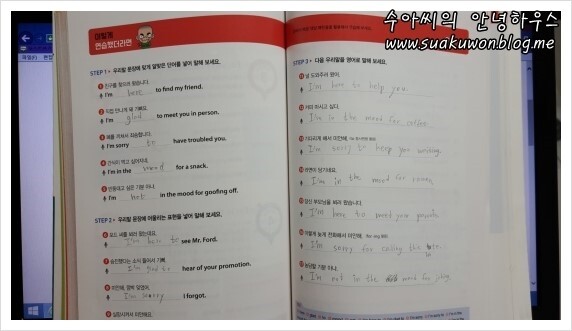 수아씨의 안녕하우스
www.suakuwon.blog.me
이렇게
연습했더라면
STEP 1 • 우리말 문장에 맞게 알맞은 단어를 넣어 말해 보세요.
1 친구를 찾으러 왔습니다.
I'm here to find my friend.
2 직접 만나게 돼 기뻐요.
I'm glad to meet you in person.
3 폐를 끼쳐서 죄송합니다.
I'm sorry to have troubled you.
4 간식이 먹고 싶어지네.
I'm in the mood for a snack.
5 빈둥대고 싶은 기분 아냐.
I'm not in the mood for goofing off.
STEP 2 • 우리말 문장에 어울리는 표현을 넣어 말해 보세요.
6 포드 씨를 뵈러 왔는데요.
I'm here to see Mr. Ford.
7 승진했다는 소식 들어서 기뻐.
I'm glad to hear of your promotion.
8 미안해, 깜빡 잊었어.
I'm sorry I forgot.
9 실망시켜서 미안해요.
STEP 3 • 다음 우리말을 영어로 말해 보세요.
널 도와주러 왔어.
I'm here to help you.
커피 마시고 싶다.
I'm in the mood for coffee
기다리게 해서 미안해.
I'm sorry to keep you waiting.
라면이 당기네요.
I'm in the mood for ramen
당신 부모님을 뵈러 왔습니다.
I'm here to meet your parents
이렇게 늦게 전화해서 미안해.
I'm sorry for calling this late.
농담할 기분 아냐.
I'm not in the mood for joking